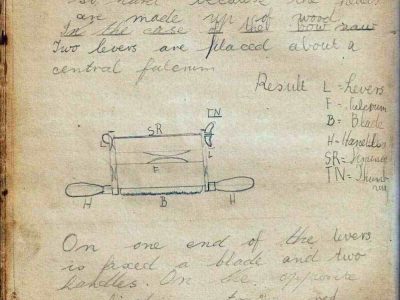 because the
are made up of wood
In the case of the bow saw
Two levers are placed about a
central fulcrum
Result L = Levers
F = Fulcrum
B = Blade
H = Handles
SR =
TN = Thumb
TN
SR
L
F
H
B
H
On one end of the levers
is fixed a blade and two
handles. On the opposite